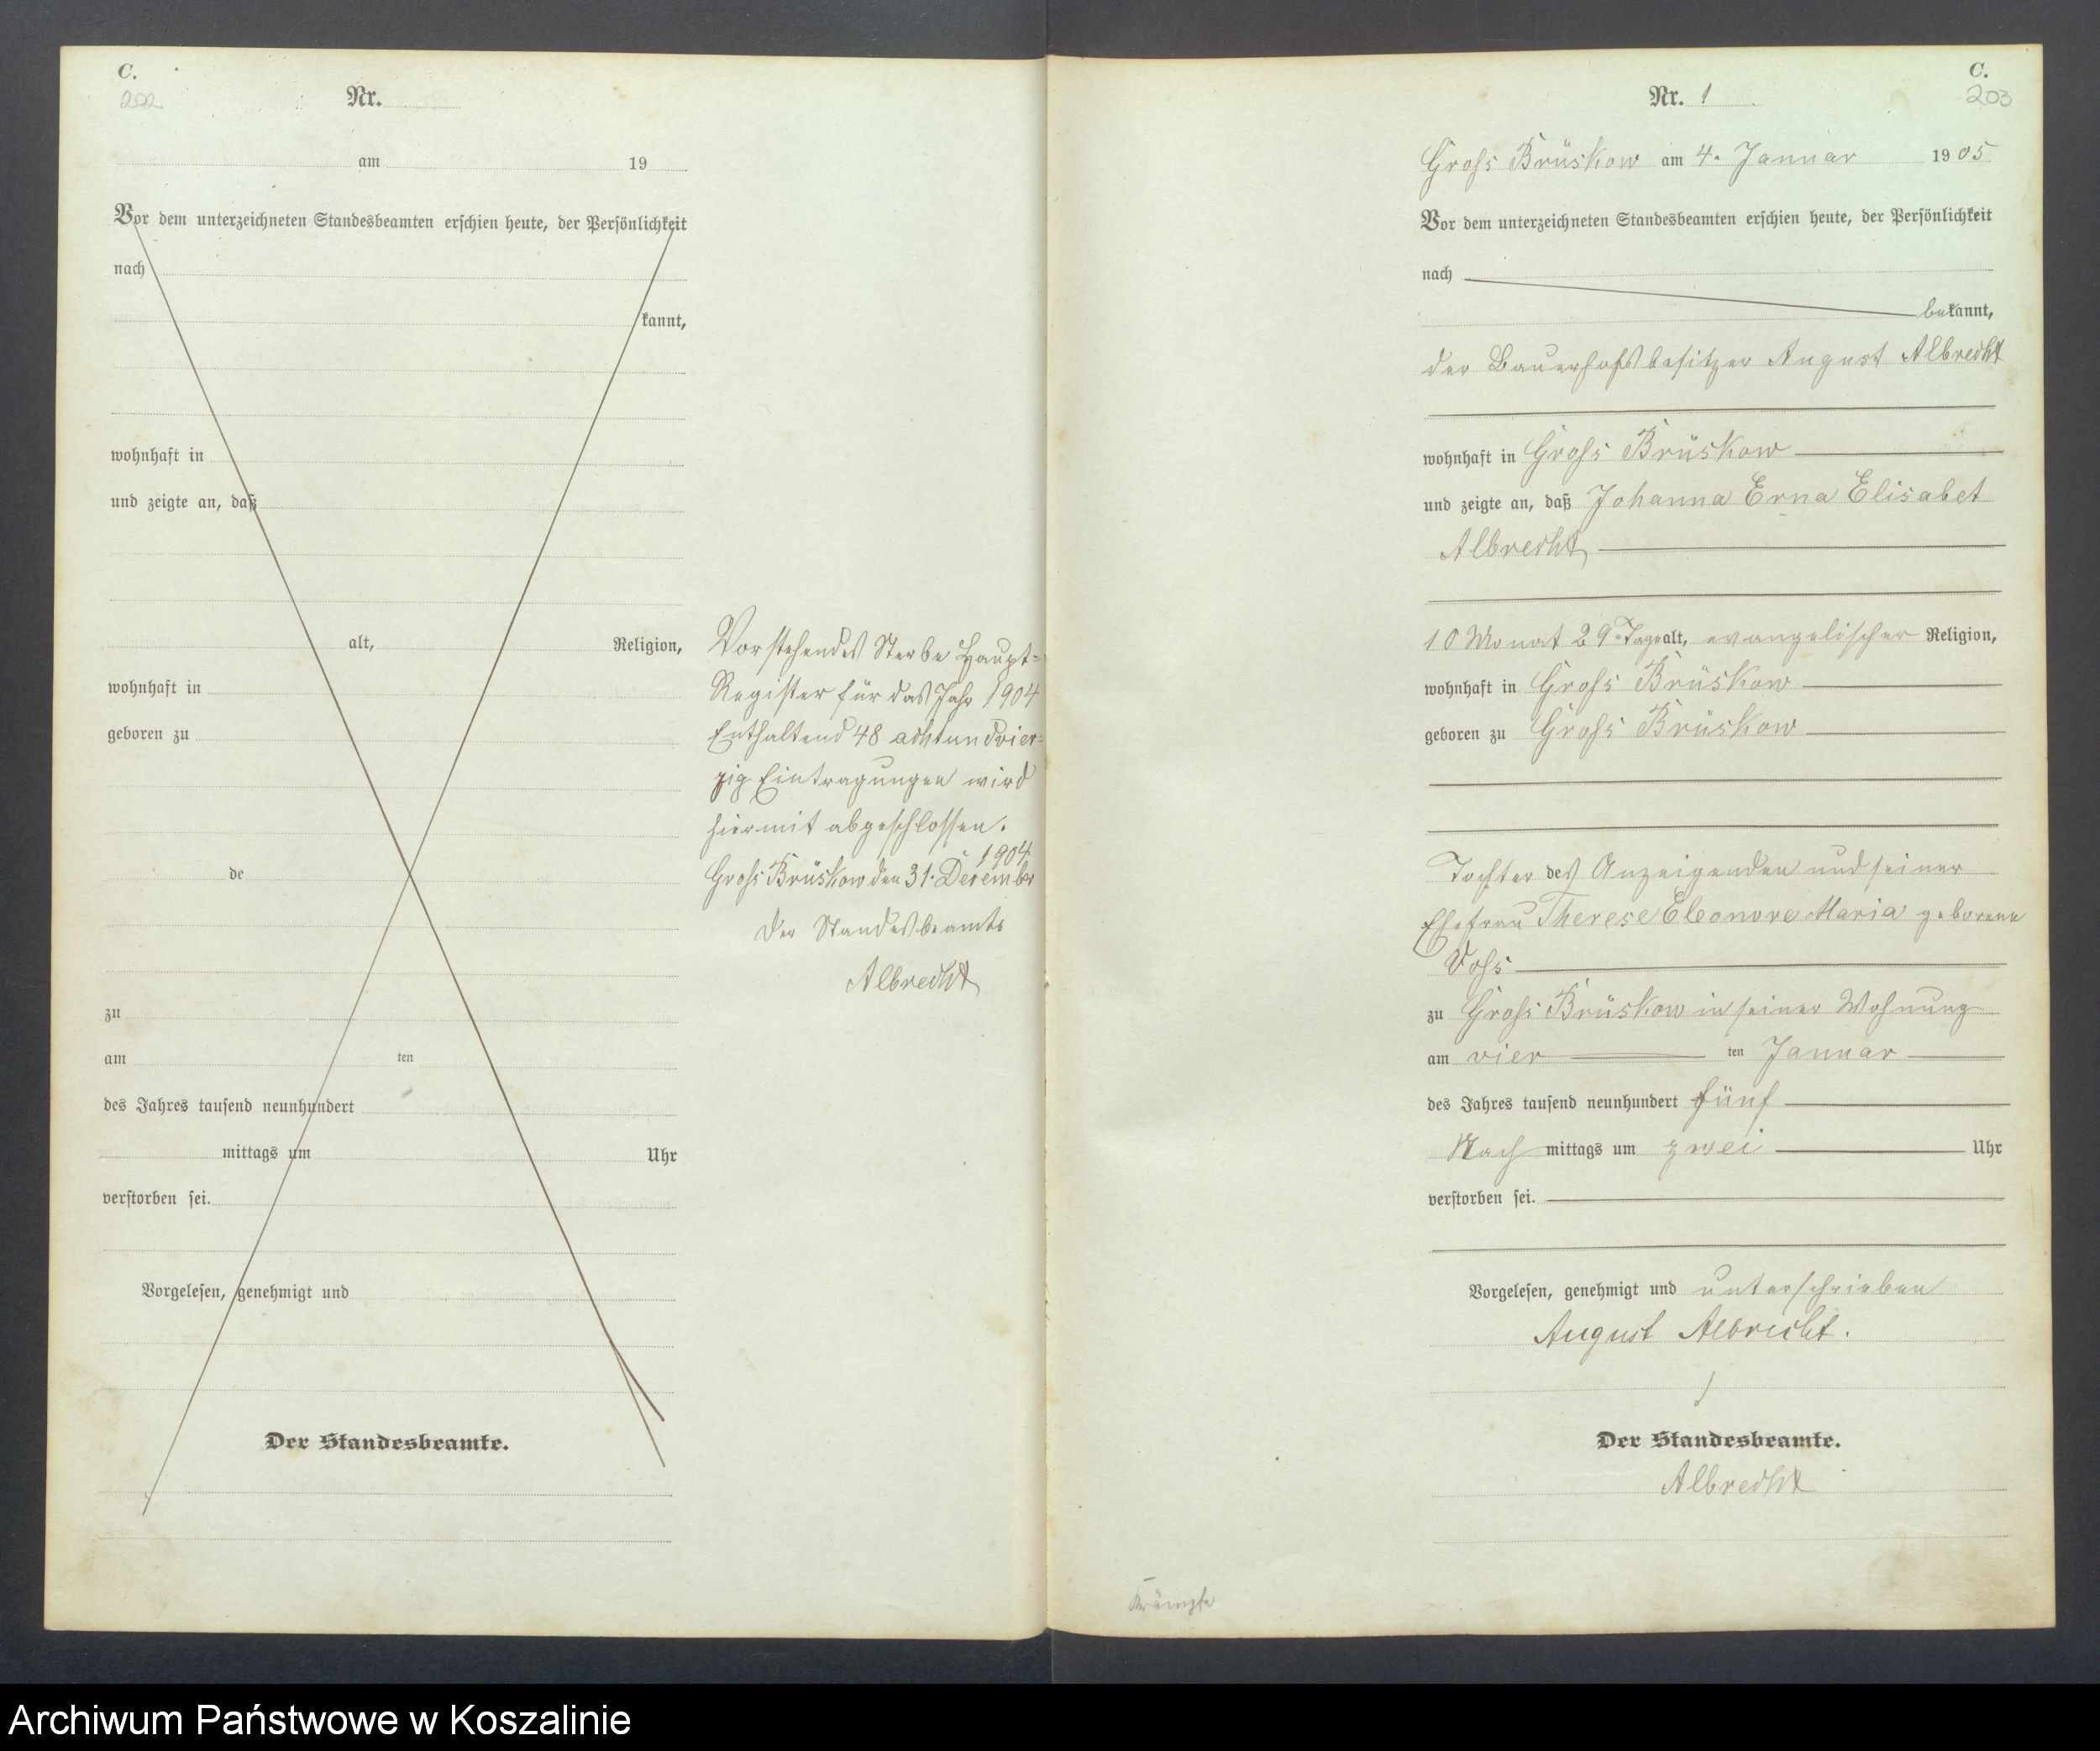 C.
202
Nr.
am 19
Vor dem unterzeichneten Standesbeamten erschien heute, der Persönlichkeit
nach
kannt,
wohnhaft in
und zeigte an, daß
alt, Religion,
wohnhaft in
geboren zu
de
zu
am ten
des Jahres tausend neunhundert
mittags um Uhr
verstorben sei.
Vorgelesen, genehmigt und
Der Standesbeamte.
Vorstehendes Sterbe Haupt=
Register für das Jahr 1904
Enthaltend 48 achtundvier=
zig Eintragungen wird
hiermit abgeschlossen.
1904
Gross Brüskow den 31. Dezember
Der Standesbeamte
Albrecht
C.
203
Nr. 1
Gross Brüskow am 4. Januar 1905
Vor dem unterzeichneten Standesbeamten erschien heute, der Persönlichkeit
nach
bekannt,
der Bauerhofsbesitzer August Albrecht
wohnhaft in Gross Brüskow
und zeigte an, daß Johanna Erna Elisabet
Albrecht
10 Monat 29 Tage alt, evangelischer Religion,
wohnhaft in Gross Brüskow
geboren zu Gross Brüskow
Tochter des Anzeigenden und seiner
Ehefrau Therese Eleonore Maria geborene
Voss
zu Gross Brüskow in seiner Wohnung
am vier ten Januar
des Jahres tausend neunhundert fünf
Nach mittags um zwei Uhr
verstorben sei.
Vorgelesen, genehmigt und unterschrieben
August Albrecht.
Der Standesbeamte.
Albrecht
Krämpfe
Archiwum Państwowe w Koszalinie